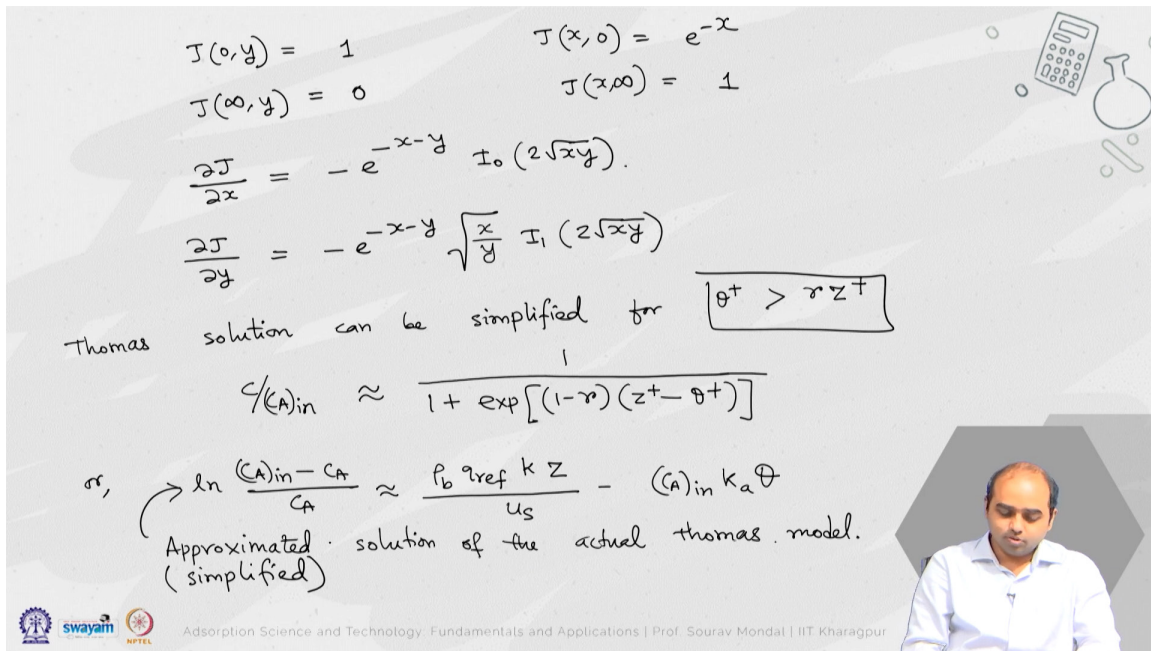 J(0,y) = 1
J(x,0) = e^{-x}
J(∞,y) = 0
J(x,∞) = 1
∂J/∂x = -e^{-x-y} I₀(2√xy).
∂J/∂y = -e^{-x-y} √(x/y) I₁(2√xy)
Thomas solution can be simplified for θ⁺ > r z⁺
C/(CA)in ≈ 1/(1 + exp[(1-r)(z⁺-θ⁺)])
or, ln (CA)in - CA / CA ≈ ρb qref k z / us - (CA)in ka θ
Approximated solution of the actual thomas model.
(simplified)
swayam
NPTEL
Adsorption Science and Technology: Fundamentals and Applications | Prof. Sourav Mondal | IIT Kharagpur